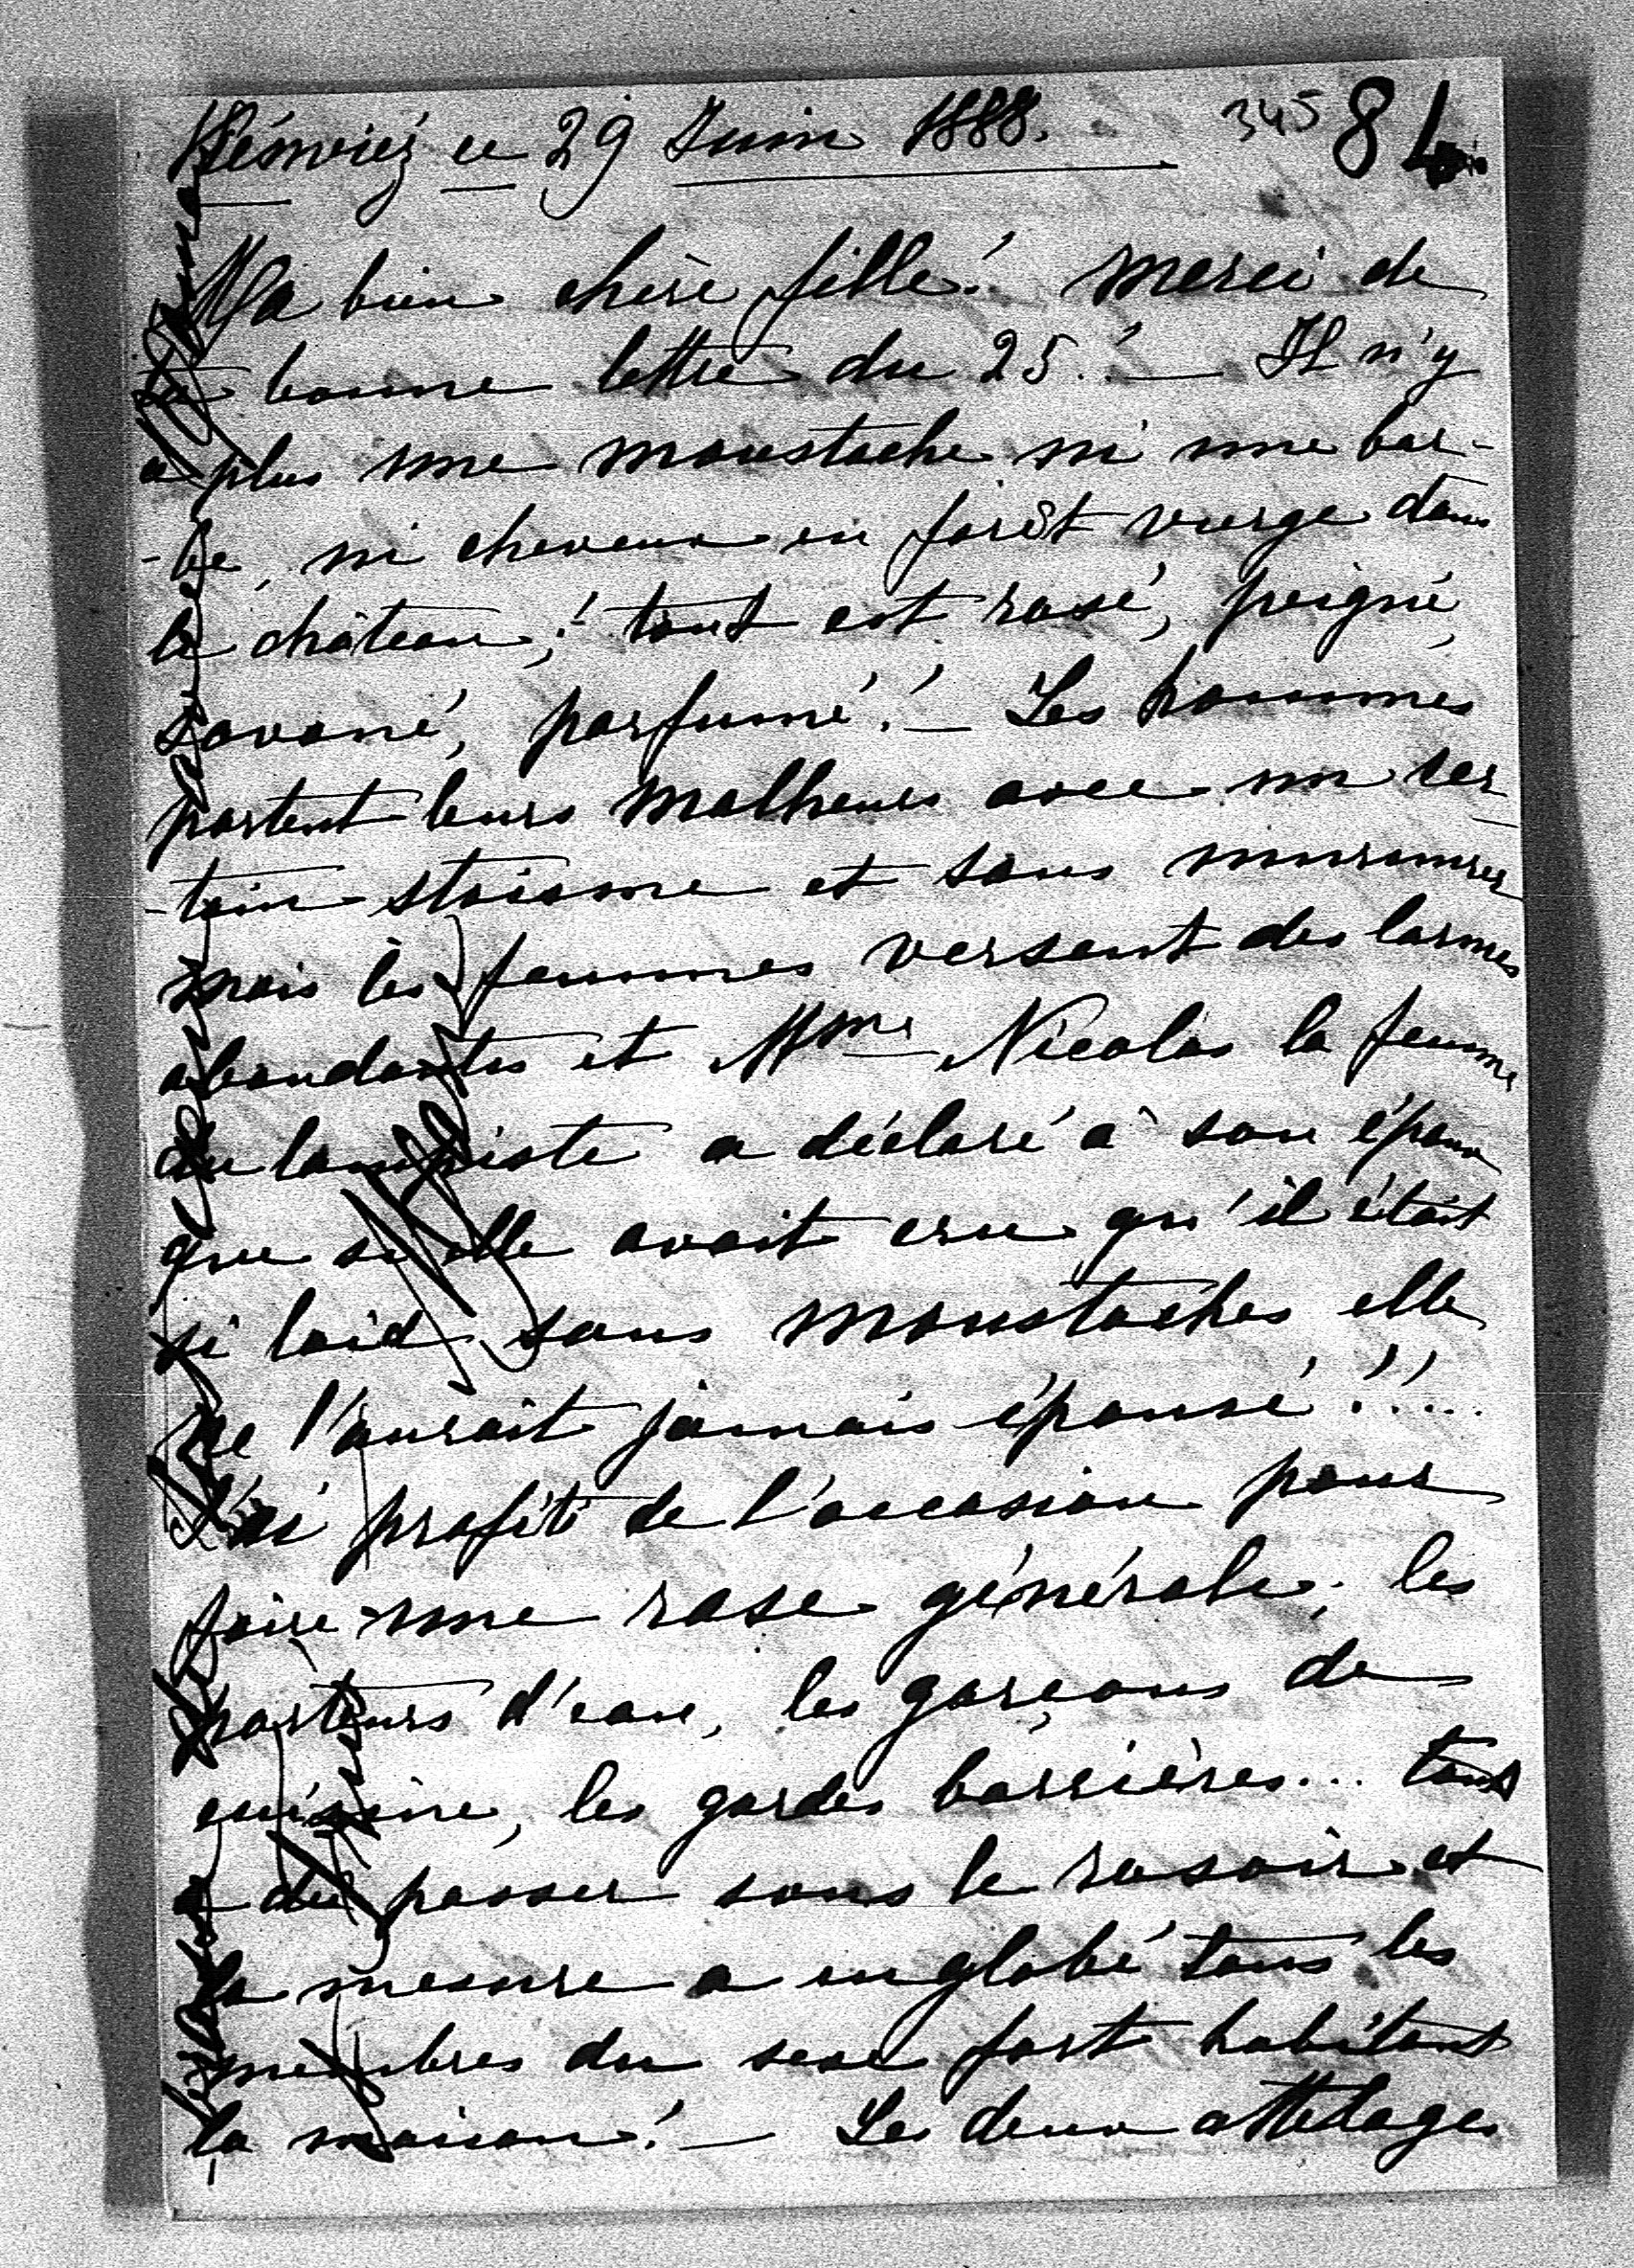 ce 29 Juin 1888.
345 84
Ma bien chère fille! merci de
ta bonne lettre du 25! — Il n'y
a plus une moustache ni une bar-
-be, ni cheveux en forêt vierge dans
le château;! tout est rasé, peigné,
savoné, parfumé! — Les hommes
portent leurs malheurs avec un cer-
-tain stoisme et sans murmurer
mais les femmes versent des larmes
abondantes et Mme Nicolas la femme
du lampiste a déclaré à son époux
que si elle avait cru qu'il était
si laid sans moustaches elle
ne l'aurait jamais épousé!!...
J'ai profité de l'occasion pour
faire une rase générale; les
porteurs d'eau, les garçons de
cuisine, les gardes barrières... tout
a dû passer sous le rasoir et
la mesure a englobé tous les
membres du sexe fort habitant
la maison! — Les deux attelages